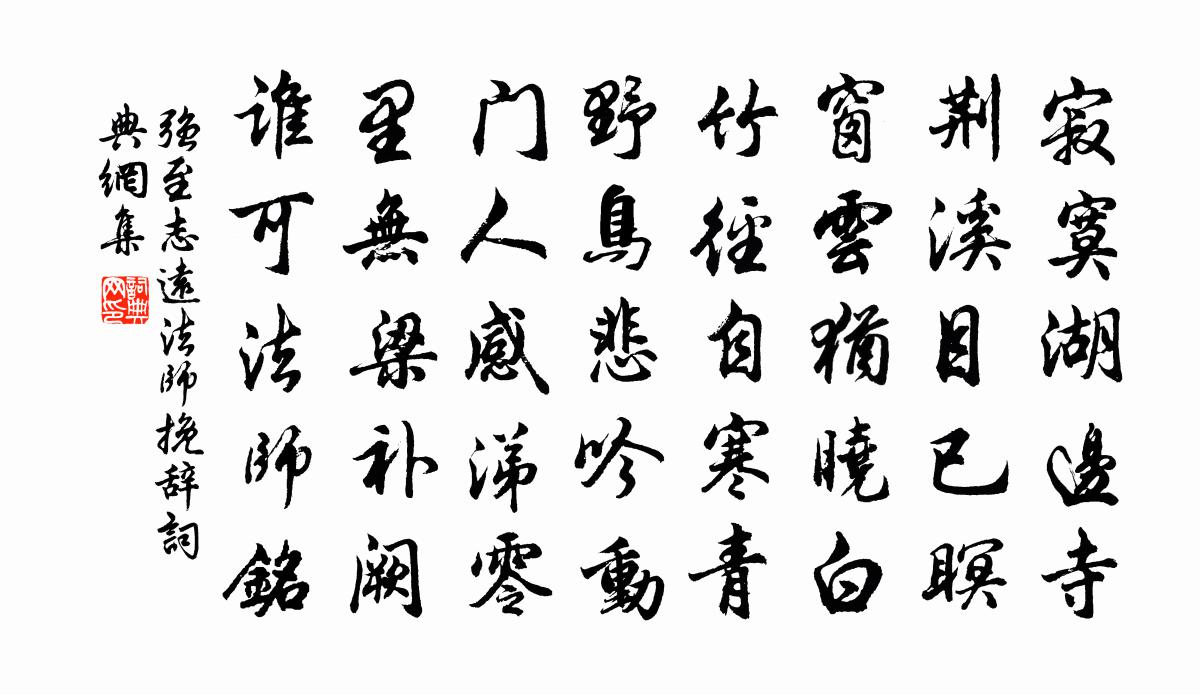 寂寞湖邊寺
荆溪目已瞑
窗雲猶曉白
竹徑自寒青
野鳥悲吟動
門人感涕零
里無梁补阙
誰可法師銘
強至志遠法師挽辞詞
典網集
詞典网印